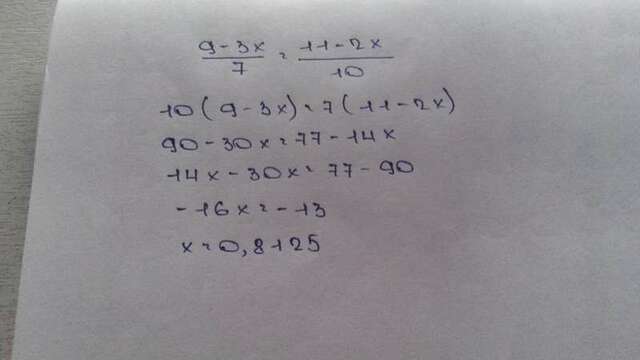 9-3x/7 = 11-2x/10
10(9-3x)=7(11-2x)
90-30x=77-14x
14x-30x=77-90
-16x=-13
x=0,8125